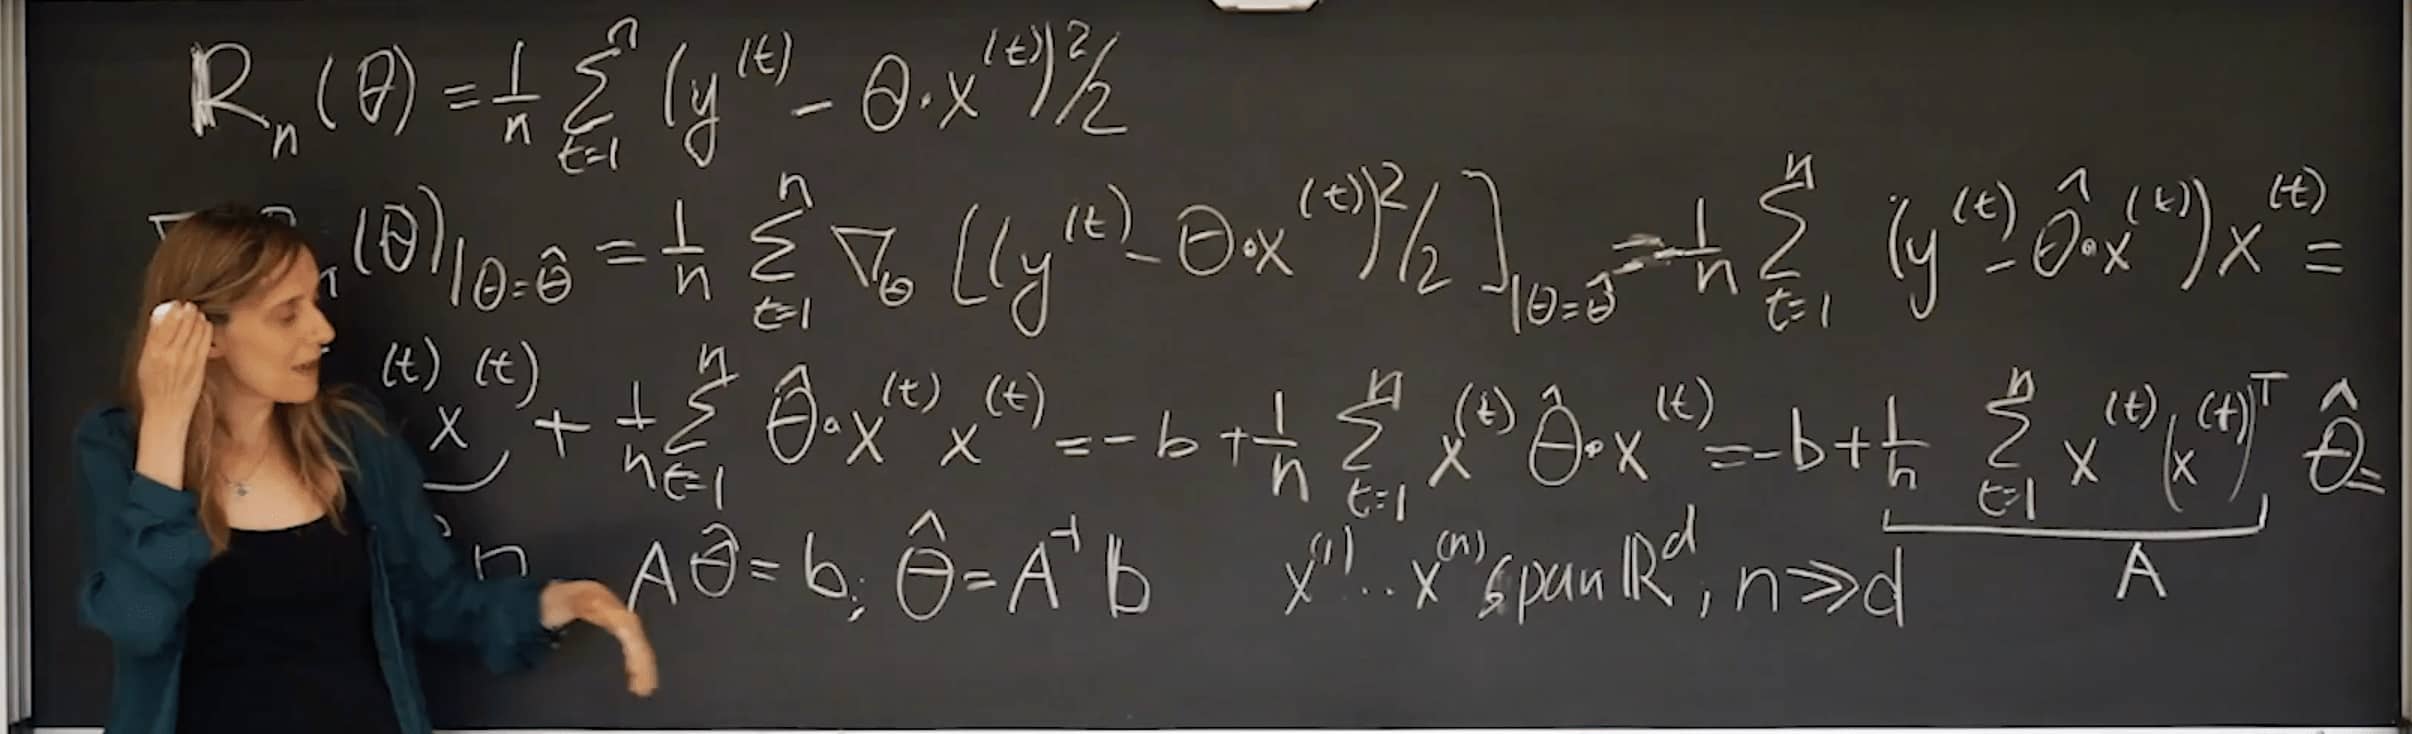 R_n(θ) = 1/n Σ_{t=1}^{n} (y^{(t)} - θ·x^{(t)})²/2
(θ)|_{θ=θ̂} = 1/n Σ_{t=1}^{n} ∇_θ [(y^{(t)} - θ·x^{(t)})²/2]_{|θ=θ̂} = -1/n Σ_{t=1}^{n} (y^{(t)} - θ̂·x^{(t)}) x^{(t)} =
^{(t)} x^{(t)} + 1/n Σ_{t=1}^{n} θ̂·x^{(t)} x^{(t)} = -b + 1/n Σ_{t=1}^{n} x^{(t)} θ̂·x^{(t)} = -b + 1/n Σ_{t=1}^{n} x^{(t)} (x^{(t)})^T θ̂ =
Aθ̂ = b; θ̂ = A^{-1} b x^{(1)} ... x^{(n)} span ℝ^d, n ≫ d A